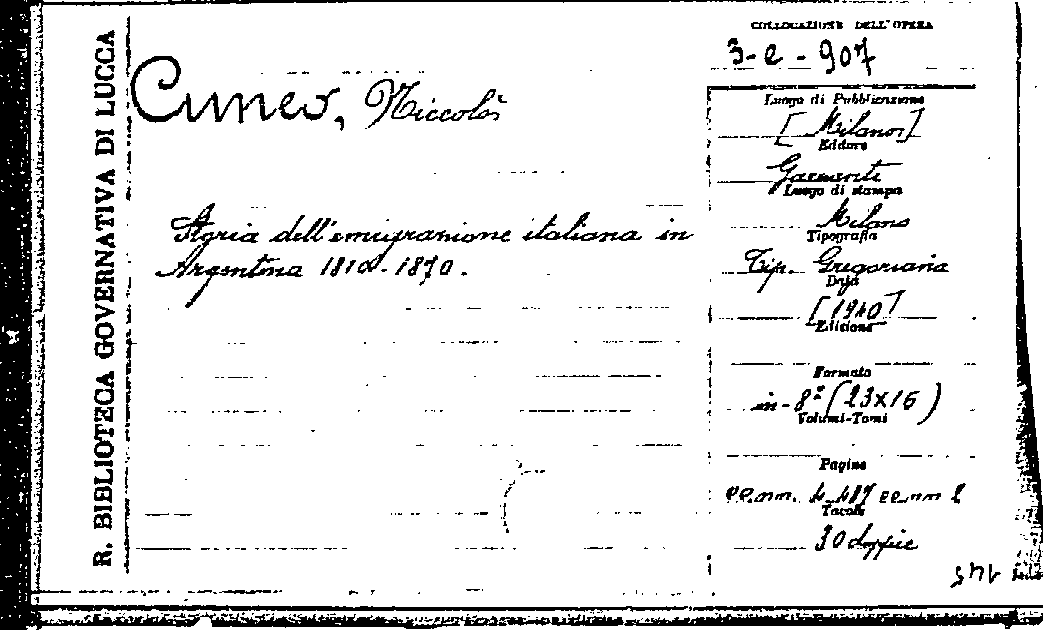 R. BIBLIOTECA GOVERNATIVA DI LUCCA
Cuneo, Niccolò
Storia dell'emigrazione italiana in
Argentina 1810-1870.
COLLOCAZIONE DELL'OPERA
3-e-907
Luogo di Pubblicazione
[Milano]
Editore
Garzanti
Luogo di stampa
Milano
Tipografia
Tip. Gregoriana
Data
[1940]
Edizione
Formato
in-8° (23x16)
Volumi-Tomi
Pagine
cc.nn. 4-487 cc.nn 2
Tavole
30 doppie